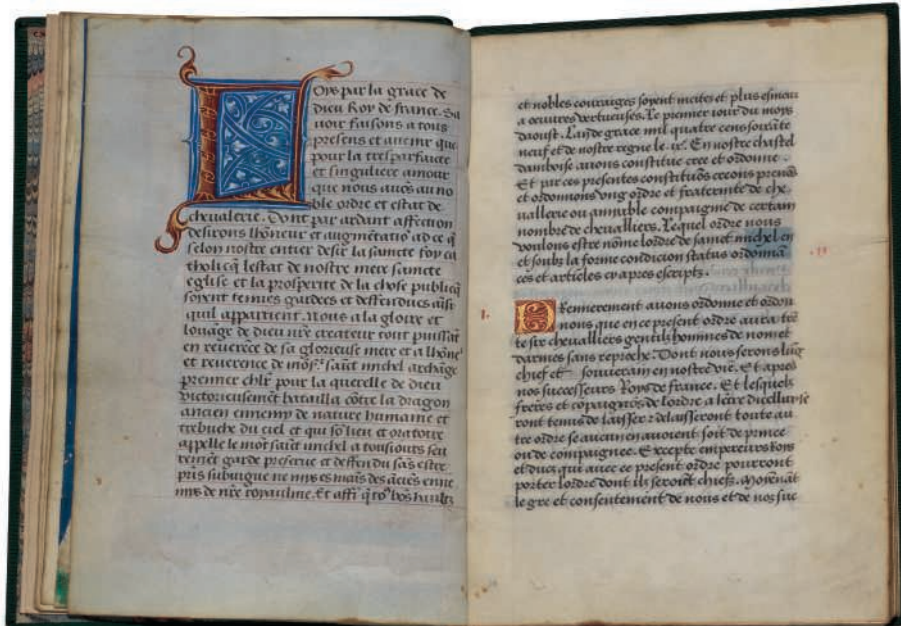 Loys par la grace de
dieu Roy de france. Sa
voir faisons a tous
presens et avenir que
pour la tresparfaicte
et singuliere amour
que nous avōs au no
ble ordre et estat de
chevalerie. Dont par ardant affection
desirons lhōneur et augmētatiō ad ce q̄
selon nostre entier desir la saincte foy ca
tholicq̄ lestat de nostre mere saincte
eglise et la prosperite de la chose publicq̄
soyent tenues gardees et deffendues aīsi
quil appartient. Nous a la gloire et
louāge de dieu nr̄e createur tout puissāt
en reverēce de sa glorieuse mere et a lhōne
et reverence de mōs. saīct michel archāge
premier chlr̄ pour la querelle de dieu
victorieusemēt batailla cōtre la dragon
ancien ennemy de nature humaine et
trebucha du ciel et qui sō lieu et oratoire
appelle le mōt saīct michel a tousiours seu
remēt garde preserve et deffendu sās estre
pris subiugue ne mys es mais des āciēs enne
mys de nr̄e royaulme. Et affī q̄ to⁹ bōs haultz
et nobles couraiges soyent incites et plus esmeuz
a oeuvres vertueuses. Le premier iour du moys
daoust. Lan de grace mil quatre cens soixāte
neuf et de nostre regne le .ix. En nostre chastel
damboise avons constitue cree et ordonne.
Et par ces presentes constituōs creons prenōs
et ordonnons ung ordre et fraternite de che
vallerie ou amiable compaignie de certain
nombre de chevalliers. Lequel ordre nous
voulons estre nōme lordre de sainct michel en
et soubz la forme condicion status ordonnā
ces et articles cy apres escripts.
1.
Premierement avons ordonne et ordon
nons que en ce present ordre aura trē
te six chevalliers gentilz hommes de nom et
darmes sans reproche. Dont nous serons lūg
chief et souverain en nostre vie. Et apres
nos successeurs Roys de france. Et lesquelz
freres et cōpaignōs de lordre a lētre dicelluy se
ront tenus de laisser et delaisseront toute au
tre ordre se aucun en avoient soit de prince
ou de compaignee. Excepte empereurs Roys
et ducz qui avec ce present ordre pourront
porter lordre dont ilz seroict chiefz. Moienāt
le gre et consentement de nous et de nos suc